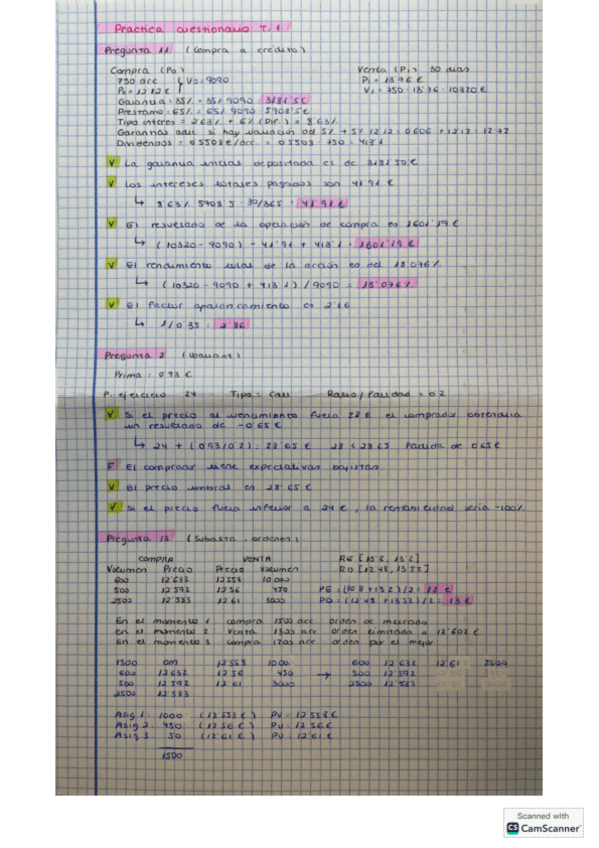 Practica cuestionario T.1
Pregunta 11 (Compra a credito)
Compra (P0) Venta (P1) 30 dias
750 acc V0 = 9090 P1 = 13'76 €
P0 = 12'12 € V1 = 750 · 13'76 = 10320 €
Garantia = 35% = 35% 9090 = 3181'5 €
Prestamo = 65% = 65% 9090 = 5908'5 €
Tipo interes = 2'63% + 6% (Dif.) = 8'63%
Garantias adic si hay variacion del 5% → 5% 12'12 = 0'606 + 12'12 = 12'72
Dividendos = 0'5508 €/acc = 0'5508 · 750 = 413'1
V La garantia inicial depositada es de 3181'50 €
V Los intereses totales pagados son 41'91 €
↳ 8'63% · 5908'5 · 30/365 = 41'91 €
V El resultado de la operacion de compra es 1601'19 €
↳ (10320 - 9090) - 41'91 + 413'1 = 1601'19 €
V El rendimiento total de la acción es del 18'076%
↳ (10320 - 9090 + 413'1) / 9090 = 18'076%
V El factor apalancamiento es 2'86
↳ 1/0'35 = 2'86
Pregunta 2 (Warrant)
Prima = 0'93 €
P. ejercicio = 24 Tipo = Call Ratio/Paridad = 0'2
V Si el precio al vencimiento fuera 28 € el comprador obtendria
un resultado de -0'65 €
↳ 24 + (0'93/0'2) = 28'65 € 28 < 28'65 Perdida de 0'65 €
F El comprador tiene expectativas bajistas
V El precio umbral es 28'65 €
V Si el precio fuera inferior a 24 €, la rentabilidad seria -100%
Pregunta 13 (Subasta, ordenes)
COMPRA VENTA
Volumen Precio Precio Volumen
600 12'632 12'558 1000
500 12'592 12'56 450
2500 12'583 12'61 3000
En el momento 1: compra 1500 acc orden de mercado
En el momento 2: venta 1300 acc orden limitada a 12'602 €
En el momento 3: compra orden por lo mejor
1500 om 12'558 1000 600 12'632 12'61 2500
600 12'632 12'56 450 → 500 12'592
500 12'592 12'61 3000 2500 12'583
2500 12'583
Asig 1: 1000 PU = 12'558 €
Asig 2: 450 (12'56 €) PU = 12'56 €
Asig 3: 50 (12'61 €) PU = 12'61 €
1500
Scanned with
CS CamScanner